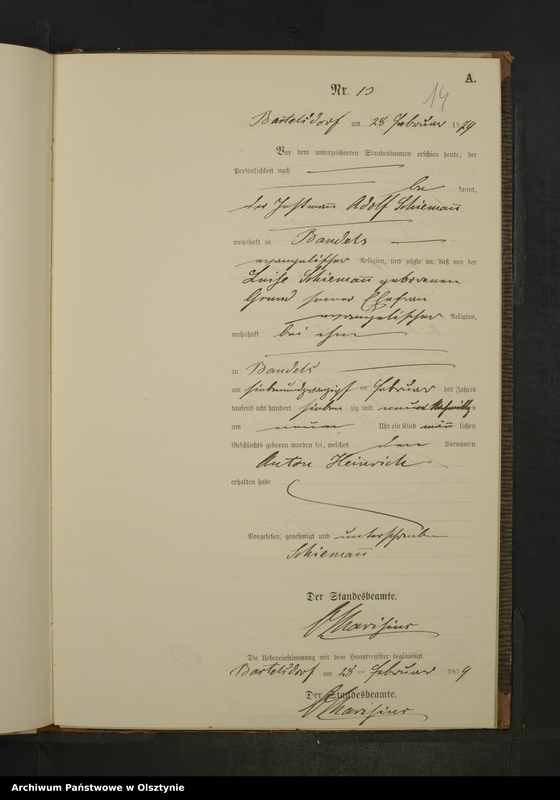 A.
Nr. 13
14
Bartelsdorf am 28 Februar 1879
Vor dem unterzeichneten Standesbeamten erschien heute, der
Persönlichkeit nach
be kannt,
der Instmann Adolf Schiemann
wohnhaft zu Bandels
evangelischer Religion, und zeigte an, daß von der
Luise Schiemann geborenen
Grund seiner Ehefrau
evangelischer Religion,
wohnhaft bei ihm
zu Bandels
am siebenundzwanzigst en Februar des Jahres
tausend acht hundert sieben zig und neun Nachmittags
um neun Uhr ein Kind männ lichen
Geschlechts geboren worden sei, welches den Vornamen
Anton Heinrich
erhalten habe
Vorgelesen, genehmigt und unterschrieben
Schiemann
Der Standesbeamte.
Die Uebereinstimmung mit dem Hauptregister beglaubigt.
Bartelsdorf am 28 ten Februar 1879
Der Standesbeamte.
Archiwum Państwowe w Olsztynie